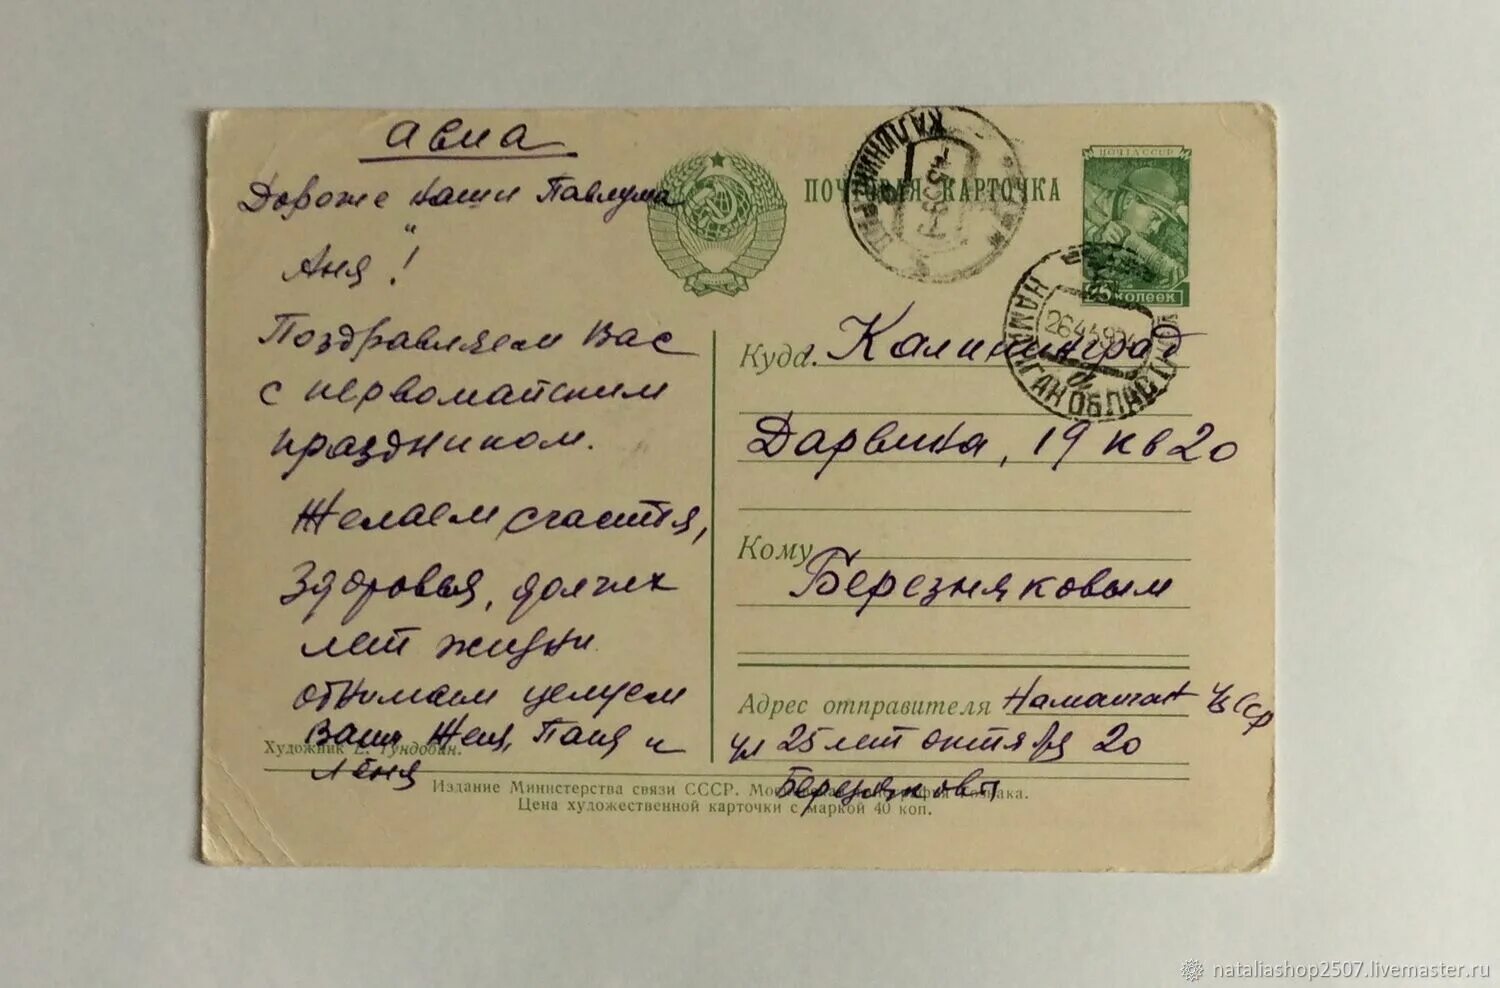 авиа
Дороже наши Павлуша
и
Аня!
Поздравляем Вас
с первомайским
праздником.
Желаем счастья,
здоровья, долгих
лет жизни
обнимаем целуем
Ваши Женя, Паня и
Лёня
Художник Е. Гундобин.
ПОЧТОВАЯ КАРТОЧКА
ПОЧТА СССР
КОПЕЕК
КАЛИНИНГРАД
НАМАНГАН ОБЛАСТНОЙ
26459
Куда Калининград
Дарвина, 19 кв 20
Кому
Березняковым
Адрес отправителя Наманган УзССР
ул 25 лет октября 20
Березняковы
Издание Министерства связи СССР.
Цена художественной карточки с маркой 40 коп.
nataliashop2507.livemaster.ru